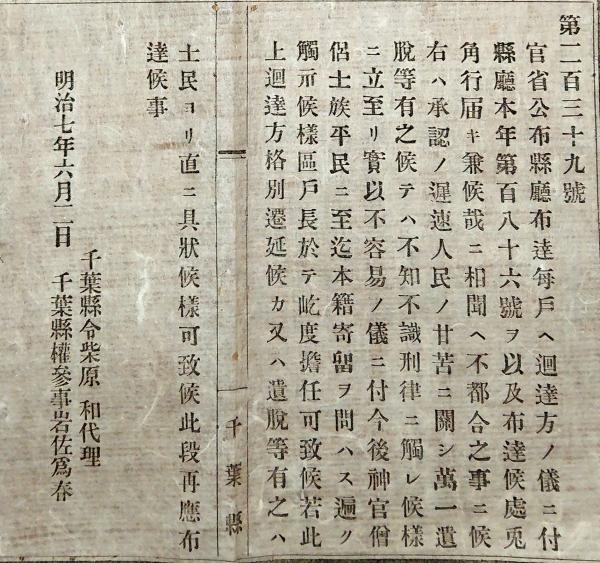 第二百三十九號
官省公布縣廳布達每戶ヘ迴達方ノ儀ニ付
縣廳本年第百八十六號ヲ以及布達候處兎
角行届キ兼候哉ニ相聞ヘ不都合之事ニ候
右ハ承認ノ遲速人民ノ甘苦ニ關シ萬一遺
脫等有之候テハ不知不識刑律ニ觸レ候樣
ニ立至リ實以不容易ノ儀ニ付今後神官僧
侶士族平民ニ至迄本籍寄留ヲ問ハス遍ク
觸示候樣區戶長於テ屹度擔任可致候若此
上迴達方格別遷延候カ又ハ遺脫等有之ハ
千葉縣
士民ヨリ直ニ具狀候樣可致候此段再應布
達候事
明治七年六月二日
千葉縣令柴原和代理
千葉縣權參事岩佐爲春